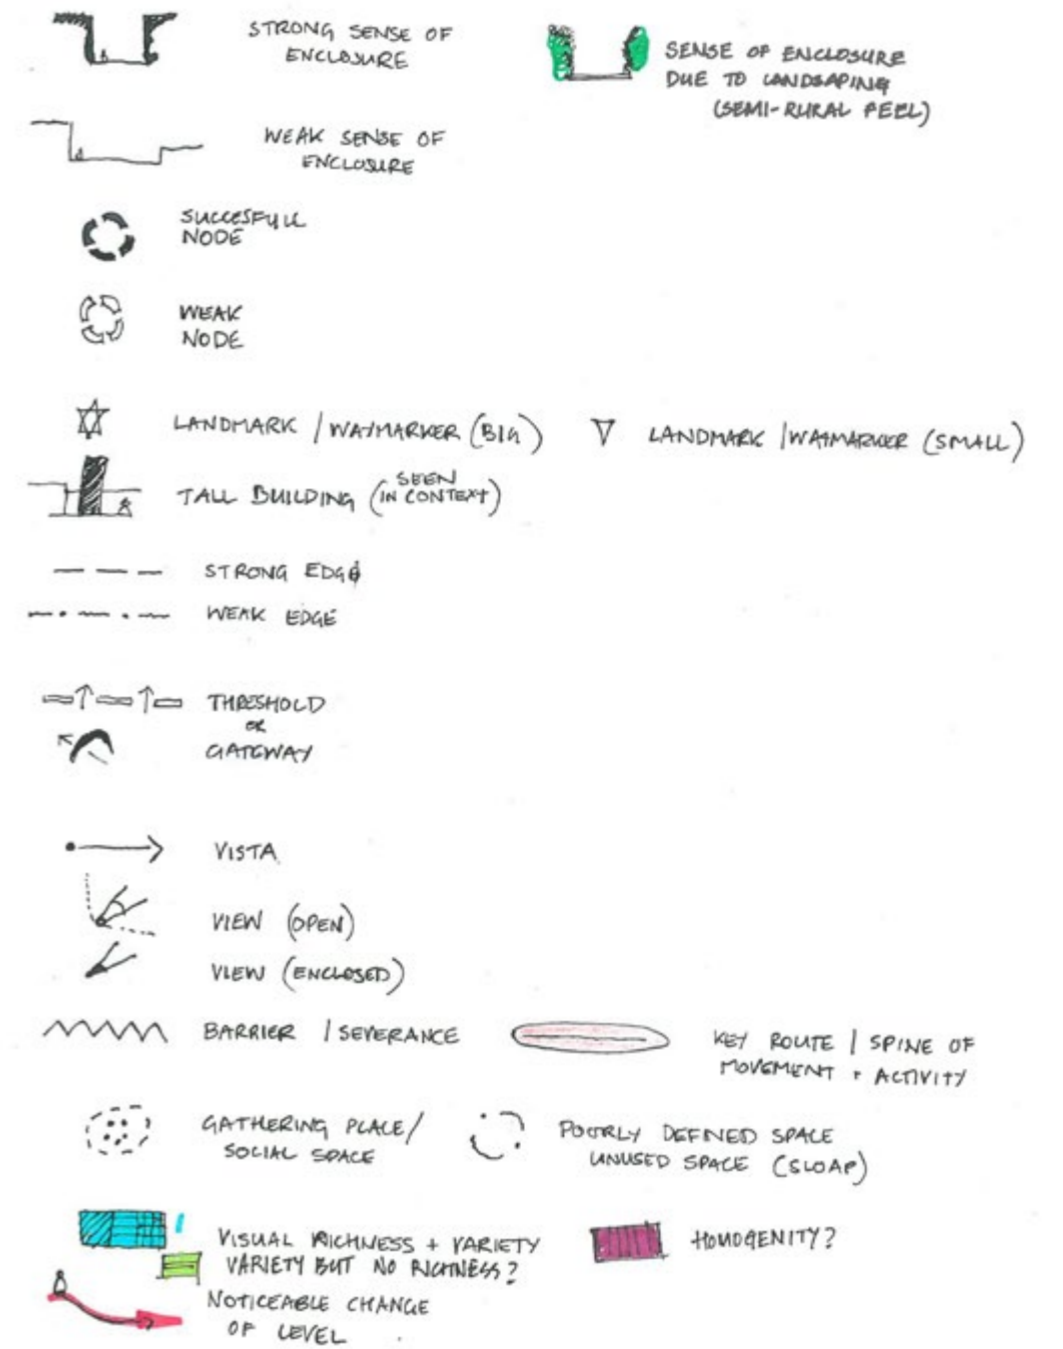 STRONG SENSE OF
ENCLOSURE
SENSE OF ENCLOSURE
DUE TO LANDSAPING
(SEMI-RURAL FEEL)
WEAK SENSE OF
ENCLOSURE
SUCCESFULL
NODE
WEAK
NODE
LANDMARK / WAYMARKER (BIG)
LANDMARK / WAYMARKER (SMALL)
TALL BUILDING (SEEN IN CONTEXT)
STRONG EDGE
WEAK EDGE
THRESHOLD
OR
GATEWAY
VISTA
VIEW (OPEN)
VIEW (ENCLOSED)
BARRIER / SEVERANCE
KEY ROUTE / SPINE OF
MOVEMENT + ACTIVITY
GATHERING PLACE/
SOCIAL SPACE
POORLY DEFINED SPACE
UNUSED SPACE (SLOAP)
VISUAL RICHNESS + VARIETY
VARIETY BUT NO RICHNESS?
HOMOGENITY?
NOTICEABLE CHANGE
OF LEVEL